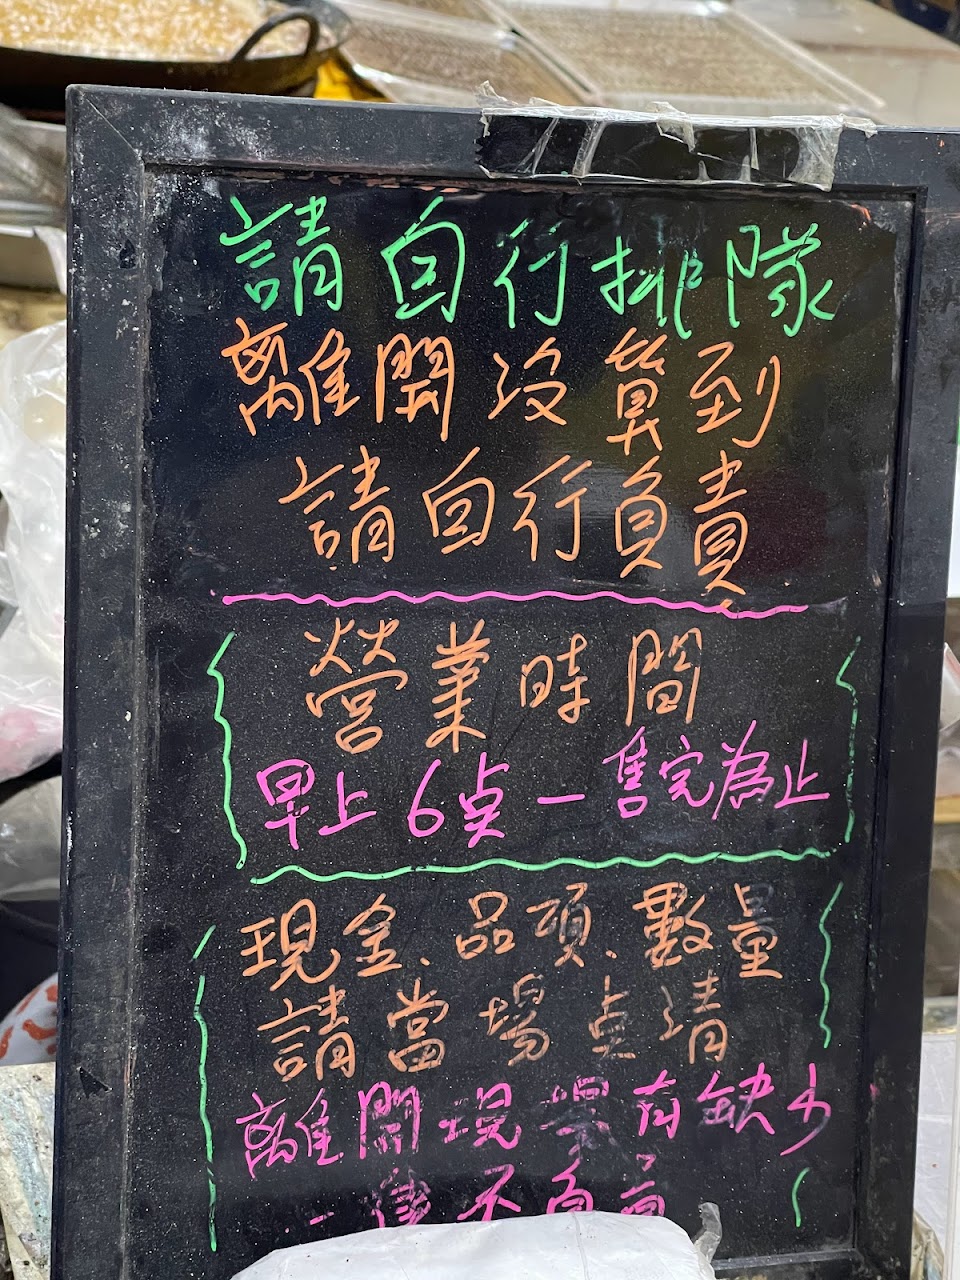 請自行排隊
離開沒算到
請自行負責
營業時間
早上6点－售完為止
現金、品項、數量
請當場点清
離開現場有缺少
一律不負責